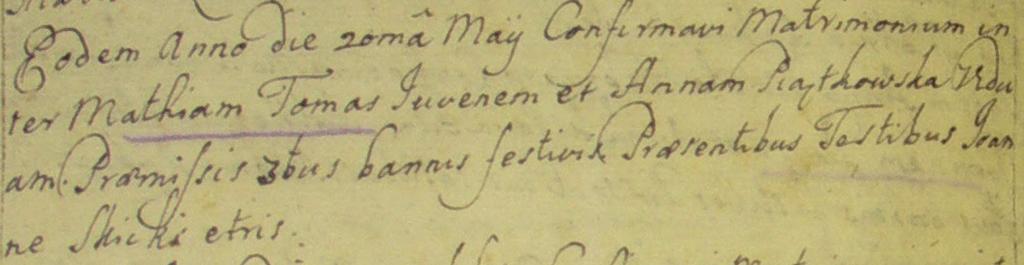 Eodem Anno die 20mâ Maÿ Confirmavi Matrimonium in
ter Mathiam Tomas Iuvenem et Annam Piątkowska Vidu
am. Præmissis 3bus bannis festivis Præsentibus Testibus Ioan
ne Skicki etris.